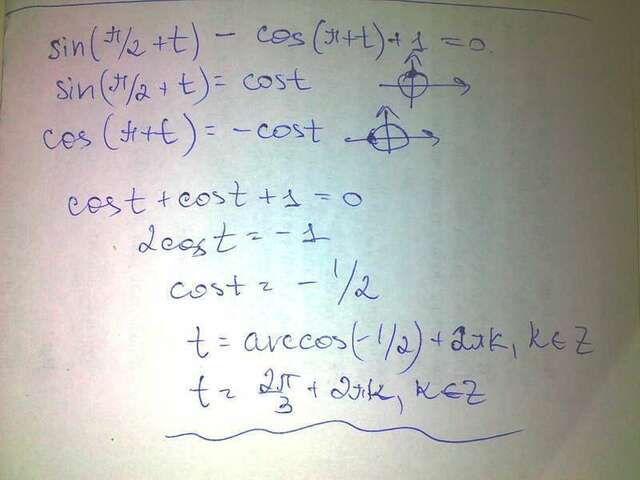 sin(π/2 + t) - cos(π+t) + 1 = 0.
sin(π/2 + t) = cost
cos(π+t) = -cost
cost + cost + 1 = 0
2cost = -1
cost = -1/2
t = arccos(-1/2) + 2πk, k∈Z
t = 2π/3 + 2πk, k∈Z